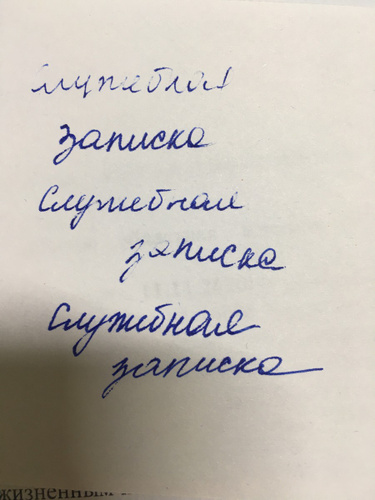 Служебная
Записка
Служебная
записка
Служебная
записка
жизненным